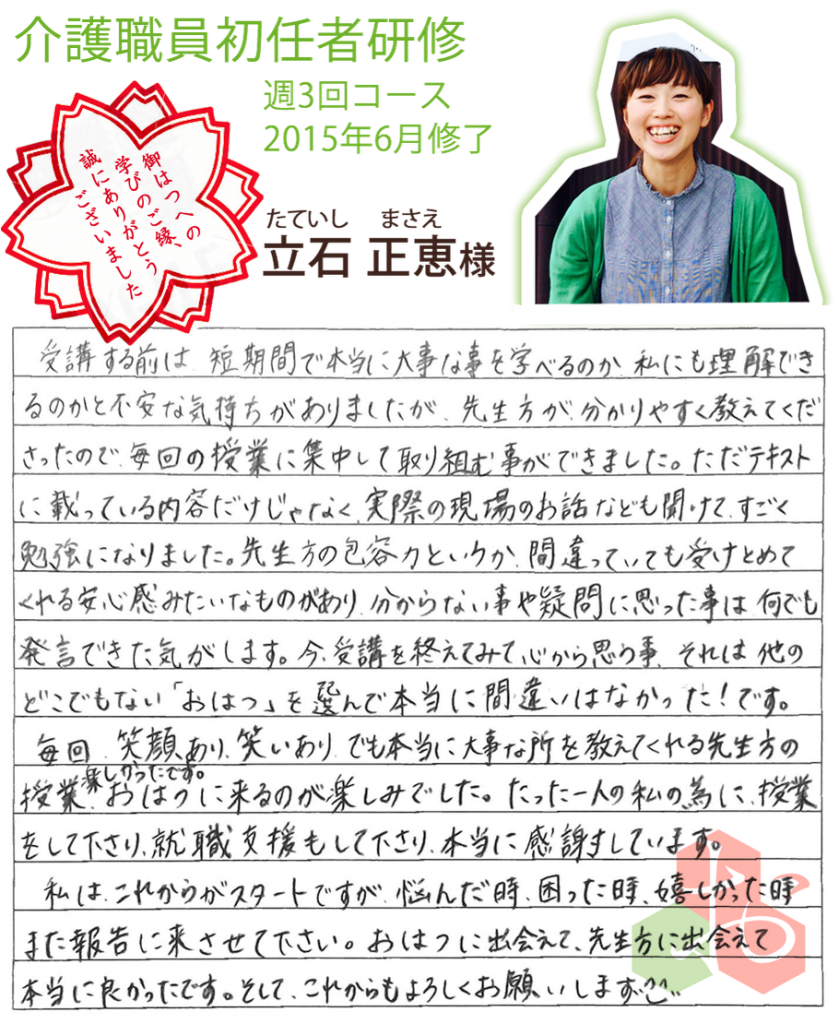 介護職員初任者研修
週3回コース
2015年6月修了
御はつへの
学びのご縁、
誠にありがとう
ございました
たていし まさえ
立石 正恵様
受講する前は、短期間で本当に大事な事を学べるのか、私にも理解でき
るのかと不安な気持ちがありましたが、先生方が、分かりやすく教えてくだ
さったので、毎回の授業に集中して取り組む事ができました。ただテキスト
に載っている内容だけじゃなく、実際の現場のお話なども聞けて、すごく
勉強になりました。先生方の包容力というか、間違っていても受けとめて
くれる安心感みたいなものがあり、分からない事や疑問に思った事は何でも
発言できた気がします。今、受講を終えてみて、心から思う事、それは他の
どこでもない「おはつ」を選んで本当に間違いはなかった!です。
毎回、笑顔あり、笑いあり、でも本当に大事な所を教えてくれる先生方の
授業、楽しかったです。おはつに来るのが楽しみでした。たった一人の私の為に、授業
をして下さり、就職支援もして下さり、本当に感謝しています。
私は、これからがスタートですが、悩んだ時、困った時、嬉しかった時
また報告に来させて下さい。おはつに出会えて、先生方に出会えて
本当に良かったです。そして、これからもよろしくお願いします